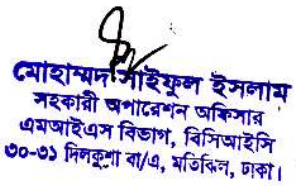 মোহাম্মদ সাইফুল ইসলাম
সহকারী অপারেশন অফিসার
এমআইএস বিভাগ, বিসিআইসি
৩০-৩১ দিলকুশা বা/এ, মতিঝিল, ঢাকা।